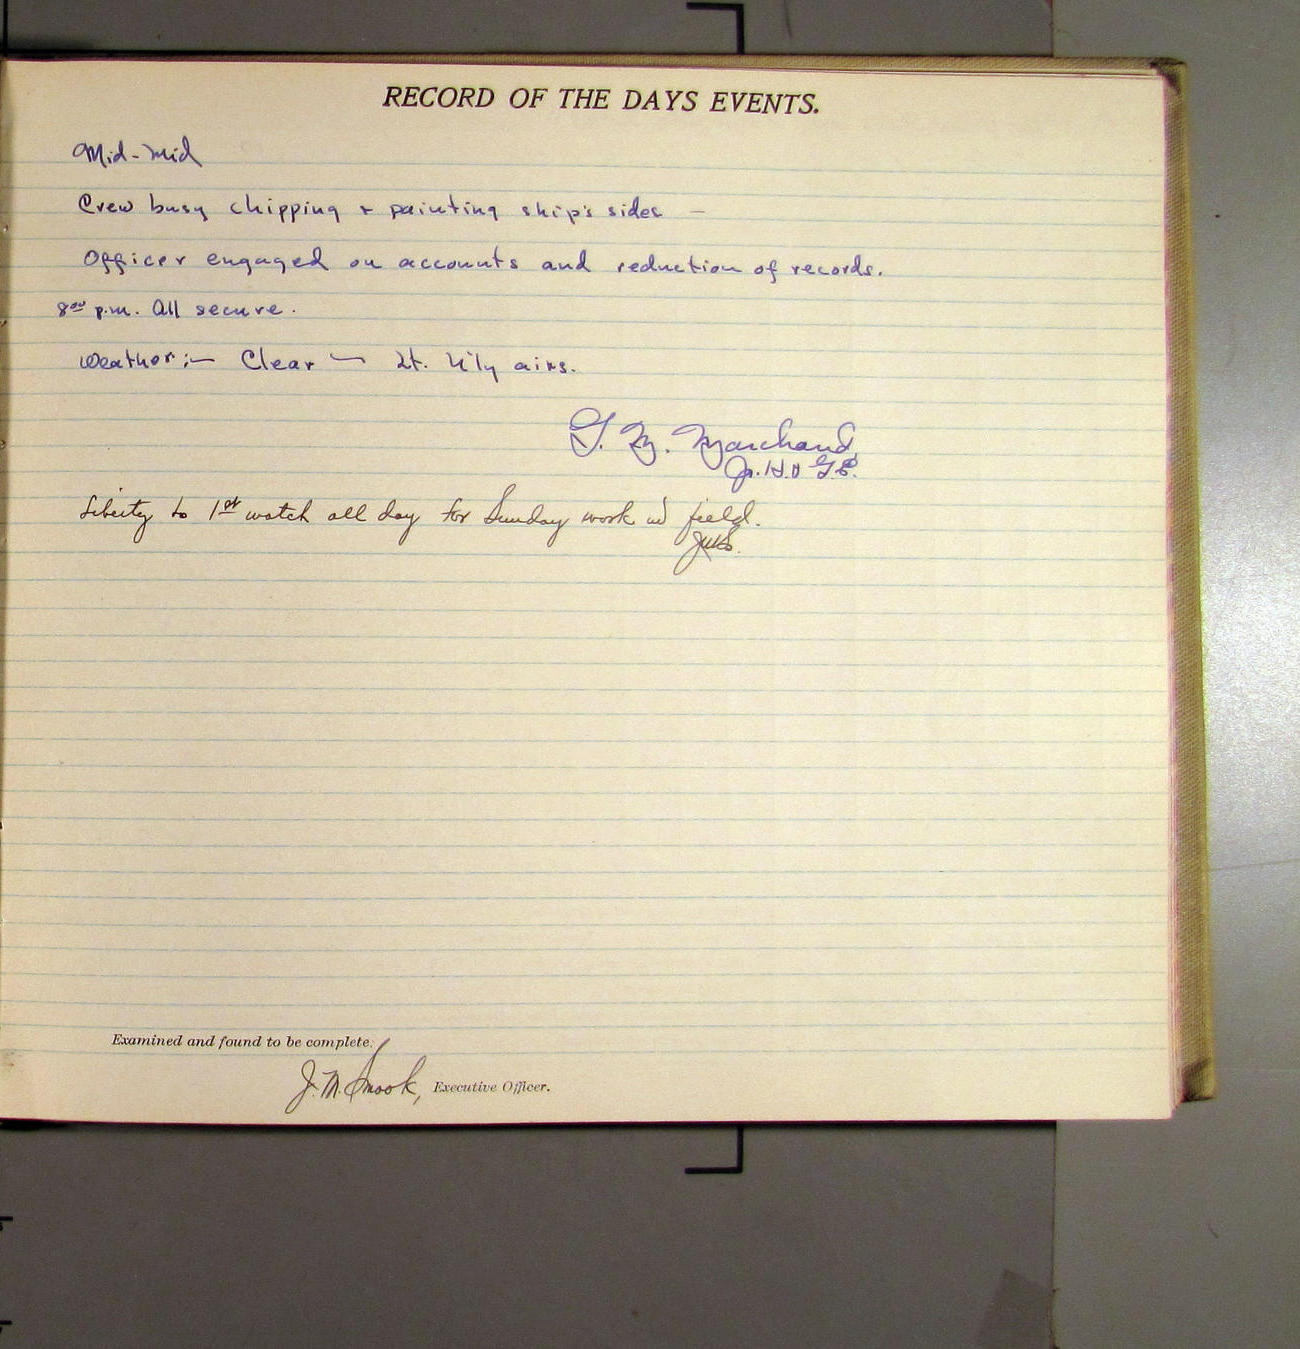 RECORD OF THE DAYS EVENTS.
Mid-Mid
Crew busy chipping + painting ship's sides —
Officer engaged on accounts and reduction of records.
8⁰⁰ p.m. All secure.
Weather:— Clear — Lt. N'ly airs.
Marchand
Jr. H. & G. E.
Liberty to 1st watch all day for Sunday work in field.
JMS.
Examined and found to be complete.
J. M. Smook, Executive Officer.